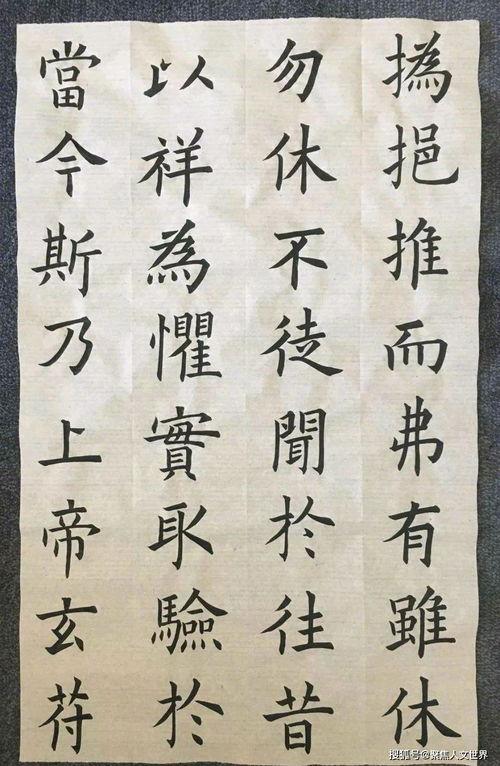 撝挹推而弗有雖休
勿休不徒聞於往昔
以祥為懼實取驗於
當今斯乃上帝玄符
搜狐号@聚焦人文世界